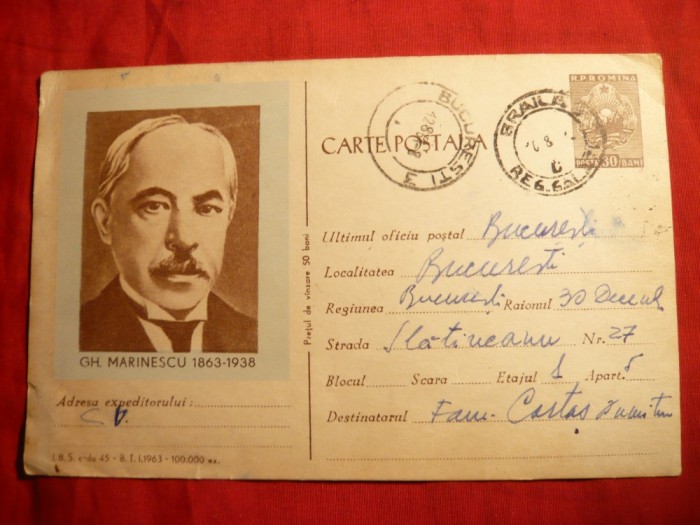 R.P.ROMINA
POSTA 30 BANI
BRAILA
REG. GAL
BUCURESTI 3
CARTE POSTALA
GH. MARINESCU 1863-1938
Prețul de vînzare 50 bani
Ultimul oficiu poștal București
Localitatea București
Regiunea București Raionul 30 Decemb
Strada Slătineanu Nr. 27
Blocul Scara Etajul 1 Apart. 5
Destinatarul Fam. Costas Dumitru
Adresa expeditorului :
I.B.S. c-da 45 - B.T. 1.1963 - 100.000 ex.